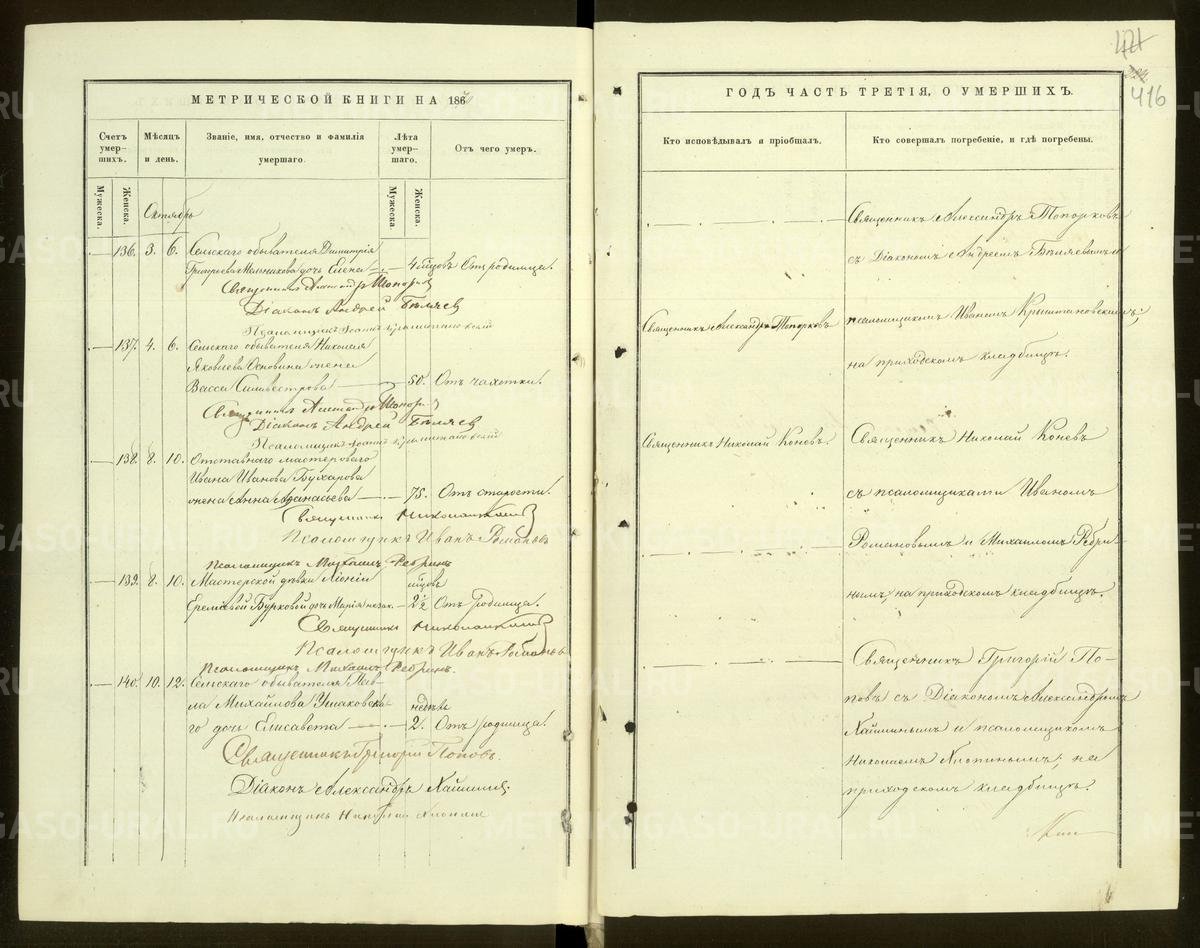 416
МЕТРИЧЕСКОЙ КНИГИ НА 186
ГОДЪ ЧАСТЬ ТРЕТІЯ, О УМЕРШИХЪ.
Счетъ умер-шихъ.
Мѣсяцъ и день.
Званіе, имя, отчество и фамилія умершаго.
Лѣта умер-шаго.
Отъ чего умеръ.
Мужеска.
Женска.
Мужеска.
Женска.
Октябрь
136. 3. 6. Сельскаго обывателя Димитрія
Григорьева Мельникова дочь Елена 4 мѣсцовъ Отъ родимца.
Священникъ Александръ Топорковъ
Діаконъ Андрей Бѣляевъ
Псаломщикъ Іоаннъ
137. 4. 6. Сельскаго обывателя Николая
Яковлева Основина жена
Васса Силивестрова 50. Отъ чахотки.
Священникъ Александръ Топорковъ
Діаконъ Андрей Бѣляевъ
Псаломщикъ Іоаннъ
138. 8. 10. Отставнаго мастероваго
Ивана Иванова Бухарова
жена Анна Аѳанасьева 75. Отъ старости.
Священникъ Николай Коневъ
Псаломщикъ Иванъ Романовъ
Псаломщикъ Михаилъ Ребринъ
139. 8. 10. Мастерской дѣвки
Бурковой дочь Марія незак. мѣсцовъ 2½ Отъ родимца.
Священникъ Николай Коневъ
Псаломщикъ Иванъ Романовъ
Псаломщикъ Михаилъ Ребринъ.
140. 10. 12. Сельскаго обывателя Пав-
ла Михайлова Ушаковска-
го дочь Елисавета недѣле 2. Отъ родимца.
Священникъ Григорій Поповъ.
Діаконъ Александръ Хайминъ.
Псаломщикъ Николай
Кто исповѣдывалъ и пріобщалъ.
Кто совершалъ погребеніе, и гдѣ погребены.
Священникъ Александръ Топорковъ
съ Діакономъ Андреемъ Бѣляевымъ и
Священникъ Александръ Топорковъ
псаломщикомъ Иваномъ Крыштановскимъ;
на приходскомъ кладбищѣ.
Священникъ Николай Коневъ.
Священникъ Николай Коневъ
съ псаломщиками Иваномъ
Романовымъ и Михаиломъ Ребри-
нымъ, на приходскомъ кладбищѣ.
Священникъ Григорій По-
повъ съ Діакономъ Александромъ
Хайминымъ и псаломщикомъ
Николаемъ Хіопинымъ; на
приходскомъ кладбищѣ.
METRIKI.GASO-URAL.RU